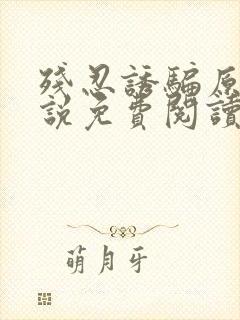 残忍誘騙原
說免費閱讀
萌月牙